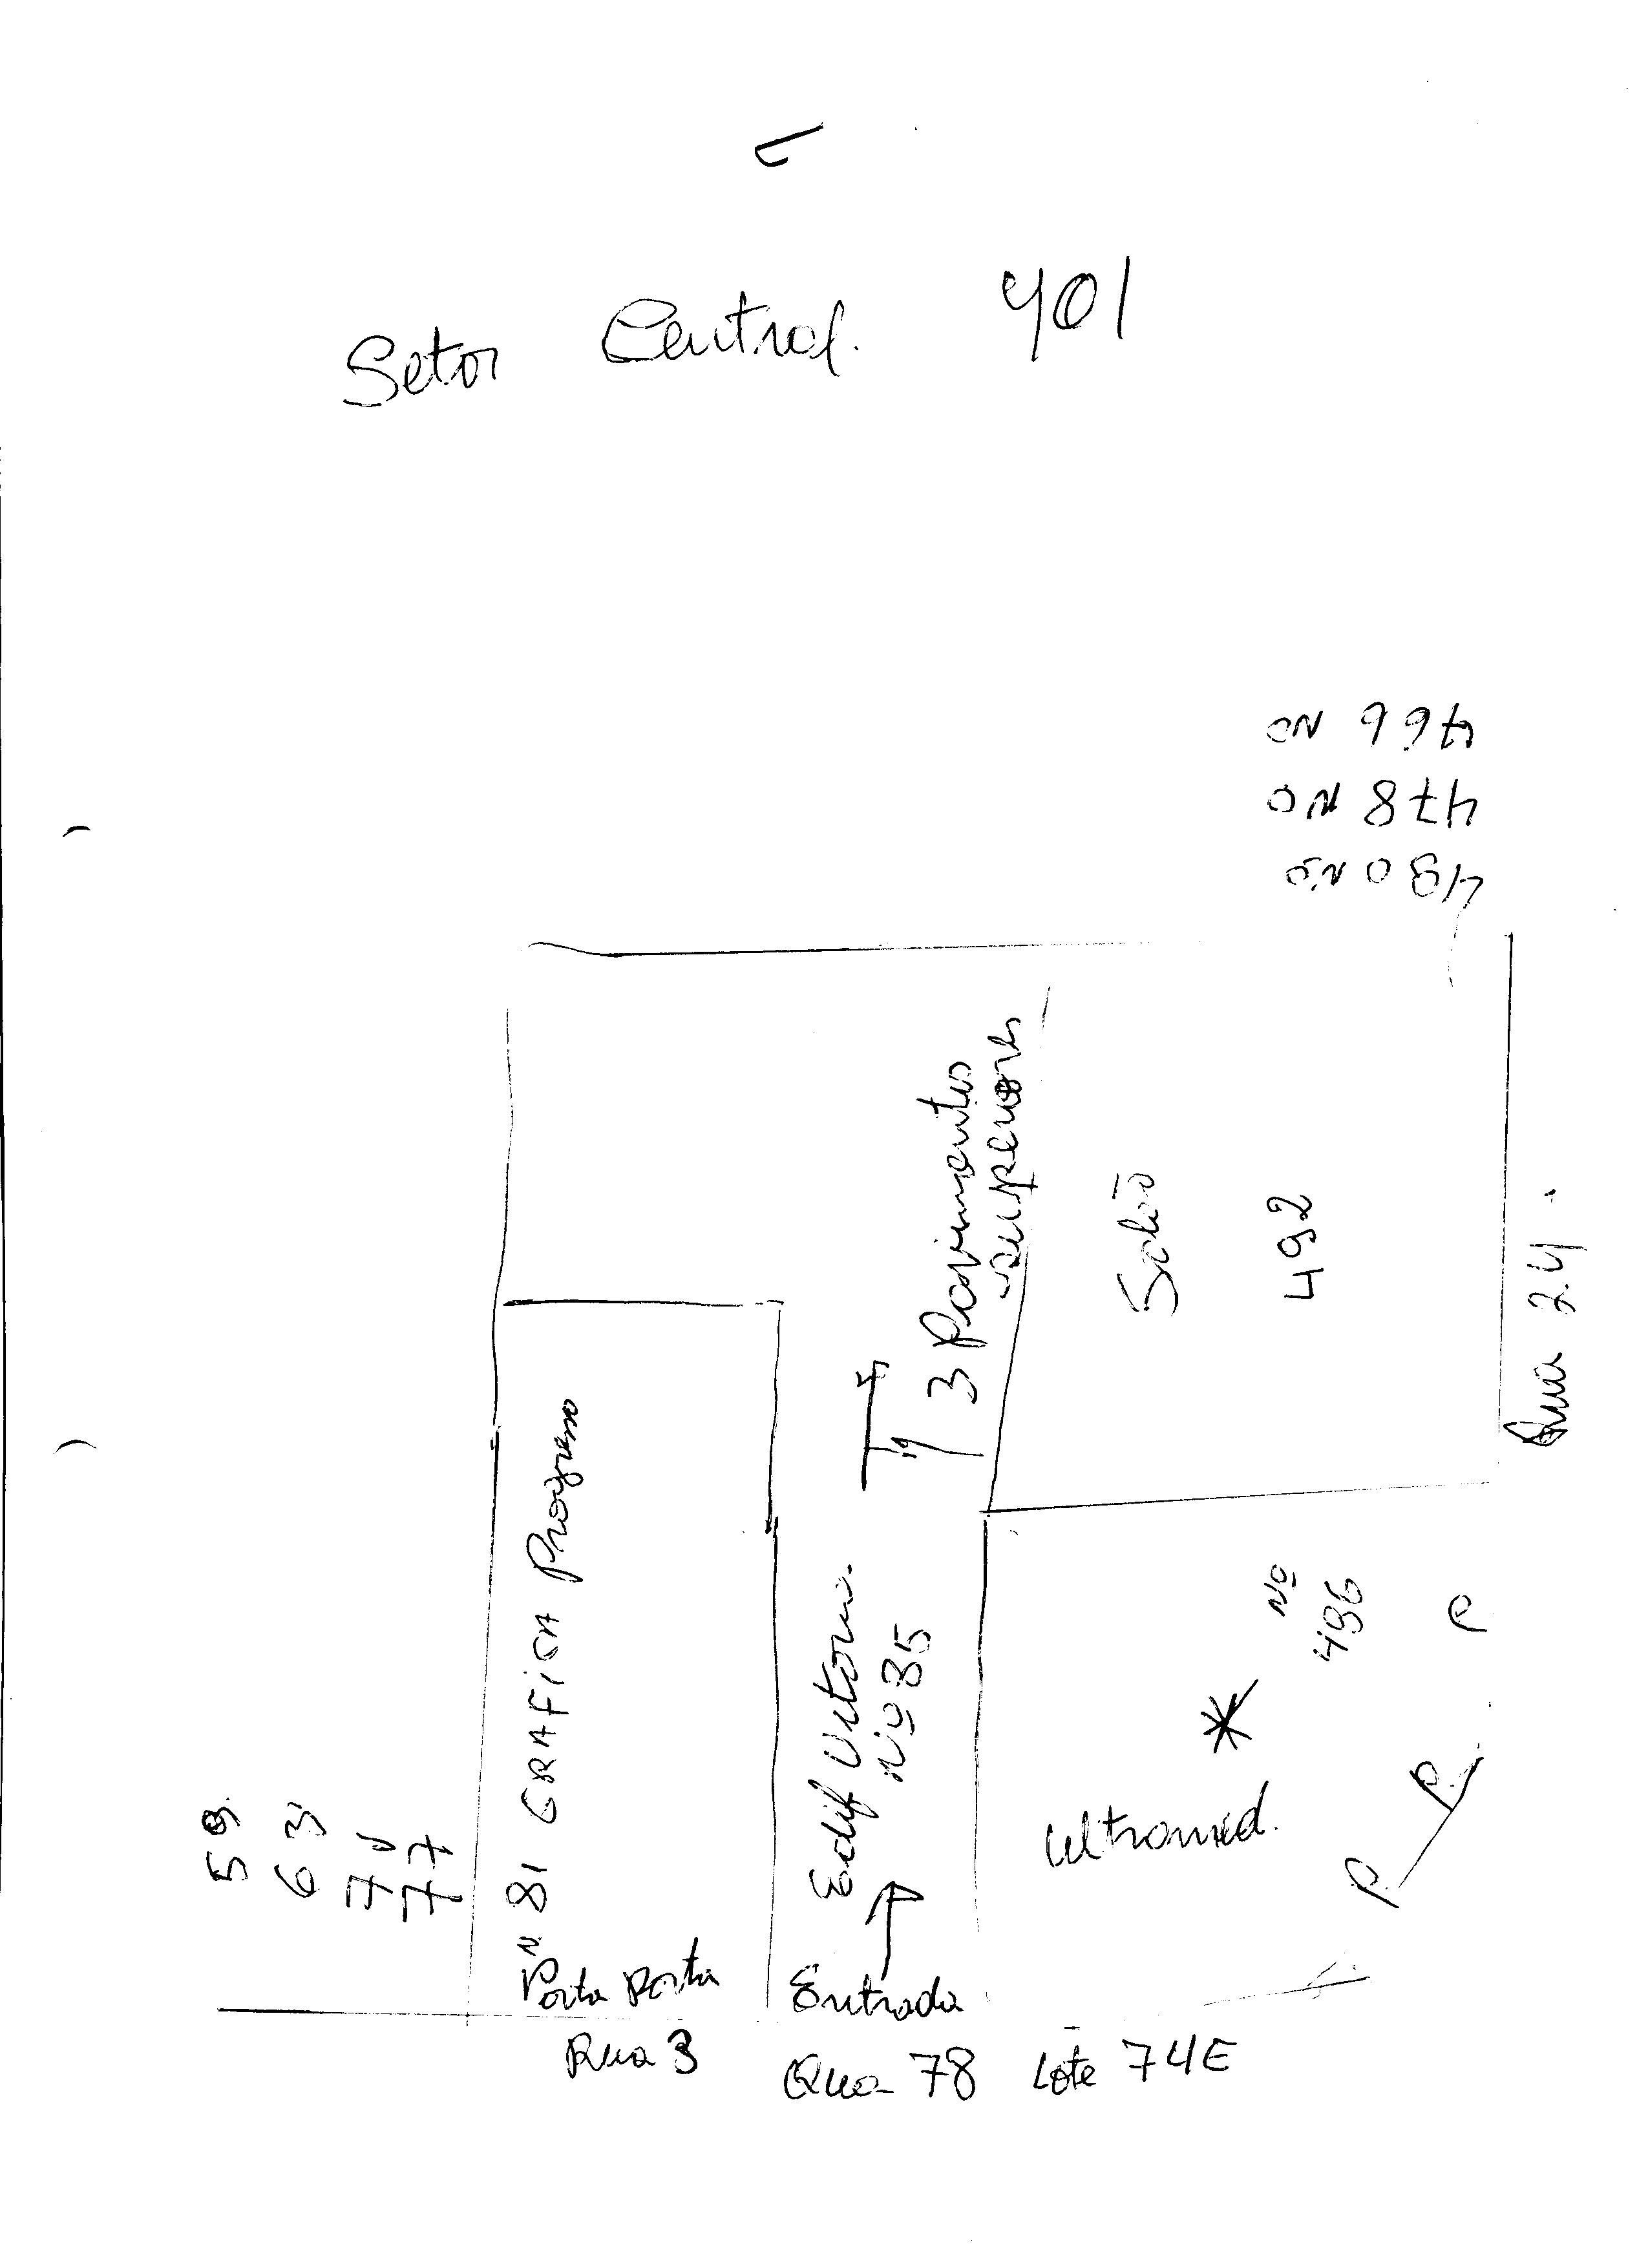 Setor Central. 401
466 no
478 no
480 no
3 Pavimentos
superiores
Salão
492
Rua 24.
N. 81 GRAFICA Progresso
Edif Vitoria
nº 85
Nº
496
Ultramed.
P
P
P
59
63
77
Porta Porta
Entrada
Rua 3
Qua 78 Lote 74E